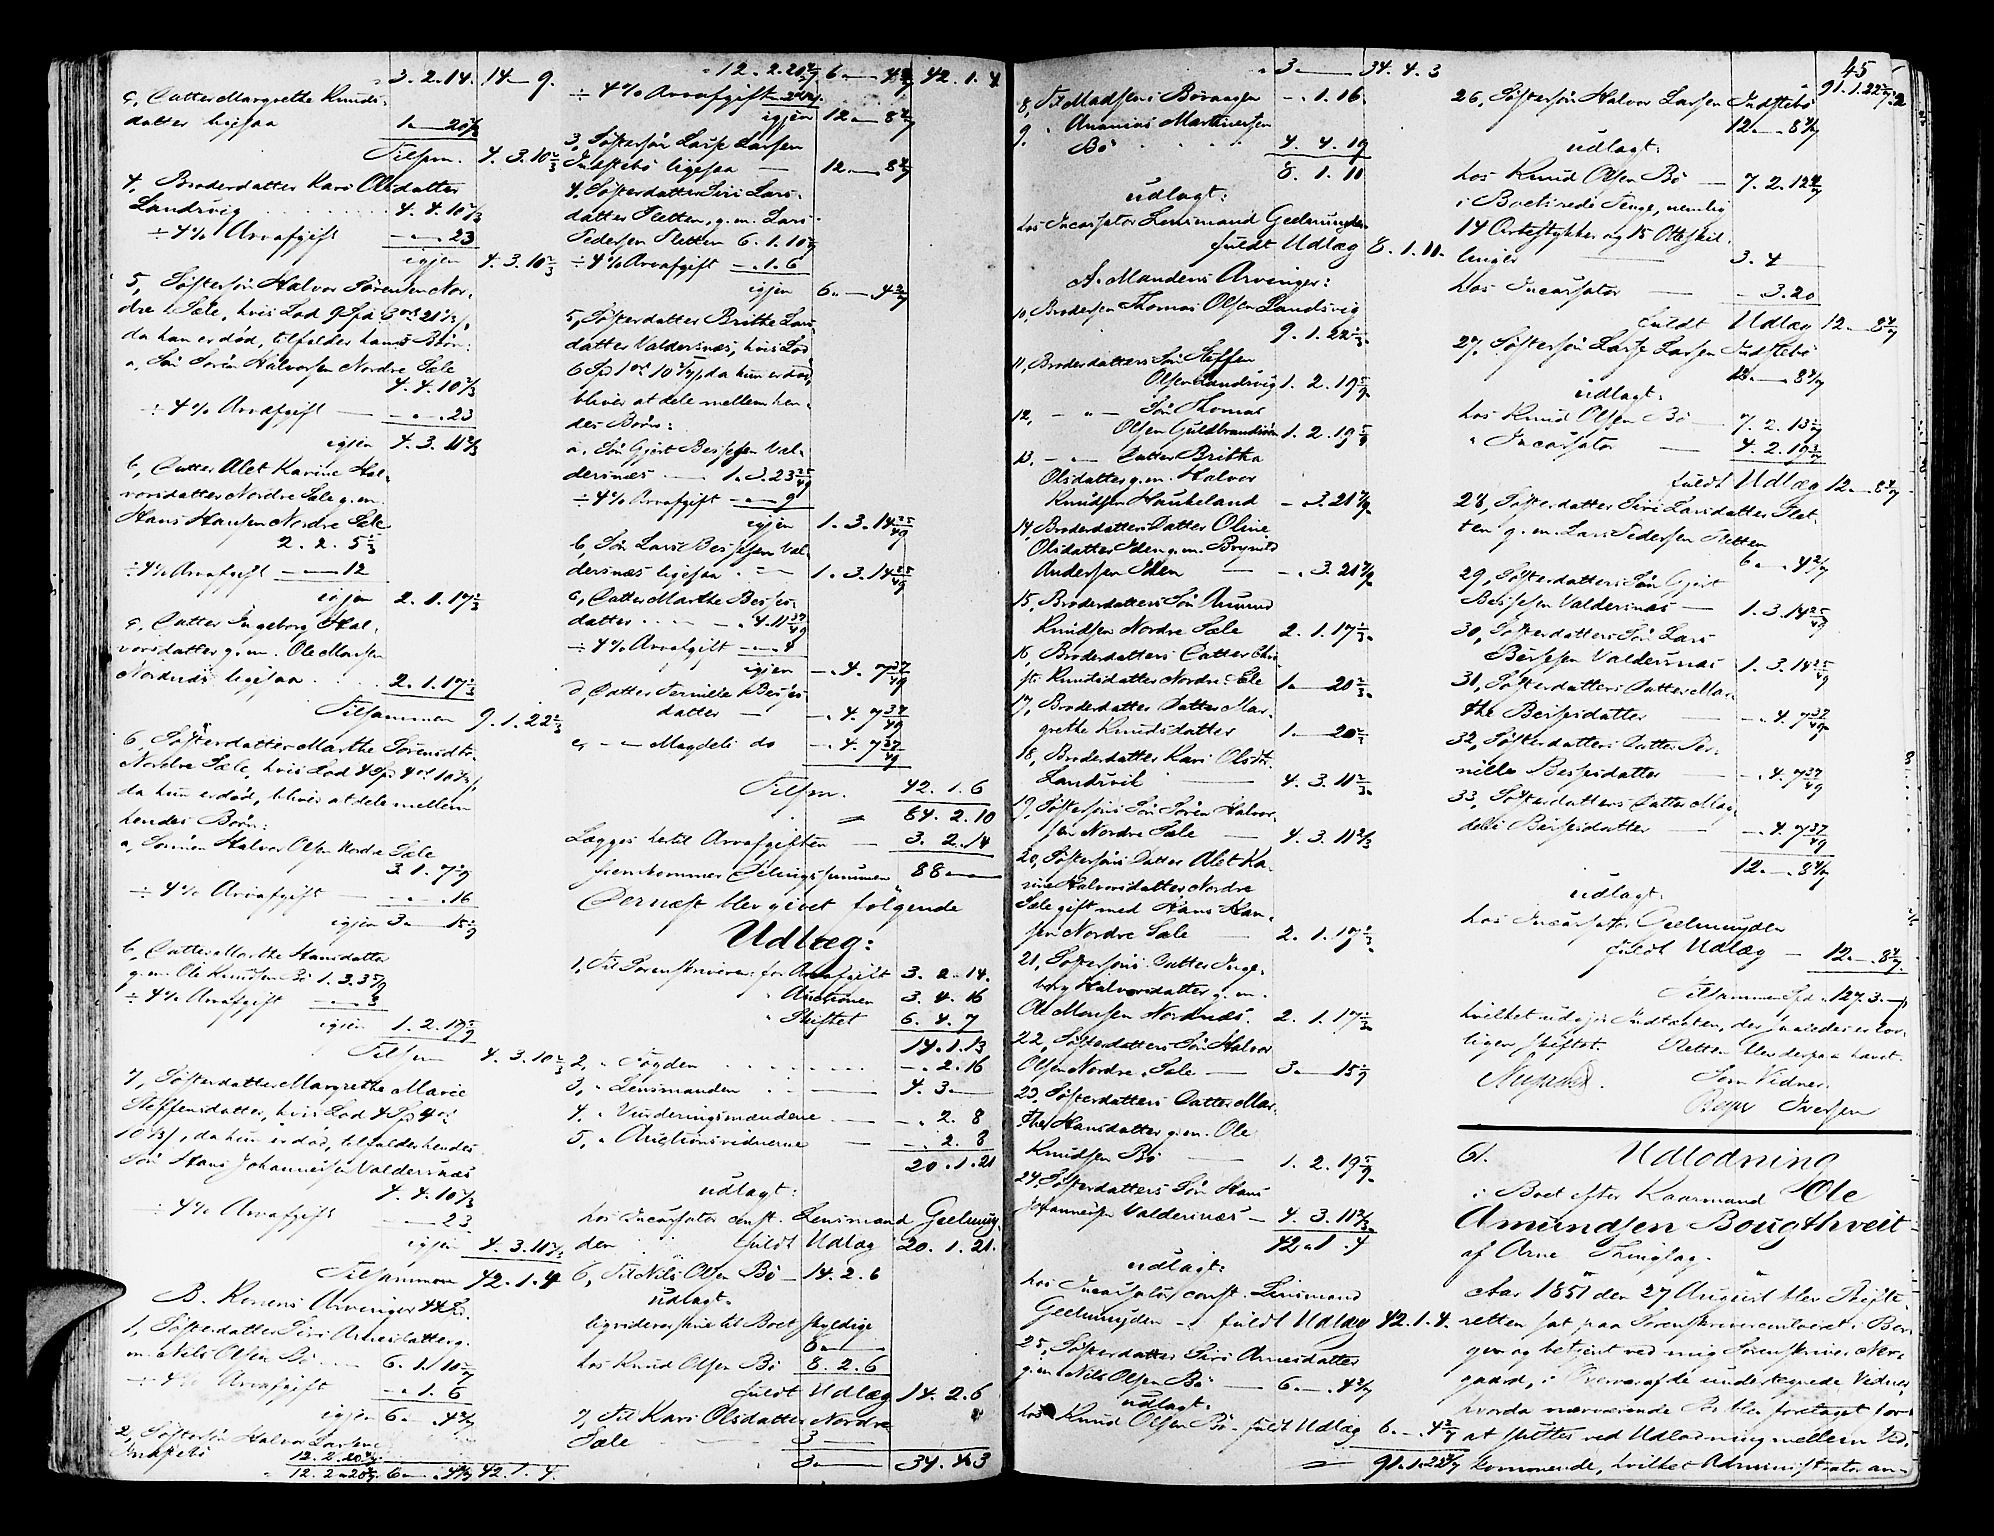 " 3. 2. 14. 14 — 9.
c, Datter Margrethe Knuds-
datter ligesaa 1 — 20 2/3
Tilsm. 4. 3. 10 2/3
4, Broderdatter Kari Olsdatter
Landsvig 4. 4. 10 1/3
÷ 4% Arvafgift — " — 23
igjen 4. 3. 10 2/3
5, Søstersøn Halvor Sørensen Nor-
dre Sæle, hvis Lod 9 Spd 3 ort 21 1/3 s,
da han er død, tilfalder hans Børn:
a, Søn Sørin Halvorsen Nordre Sæle
4. 4. 10 1/3
÷ 4% Arvafgift — — " . 23
igjen 4. 3. 11 1/3
b, Datter Alet Karine Hal-
vorsdatter Nordre Sæle g. m.
Hans Hansen Nordre Sæle
2. 2. 5 1/3
÷ 4% Arvafgift — — 12
igjen 2. 1. 17 1/3
c, Datter Ingeborg Hal-
vorsdatter g. m. Ole Monsen
Nordnæs ligesaa 2. 1. 17 1/3
Tilsammen 9. 1. 22 2/3
6, Søsterdatter Marthe Sørensdtr.
Nordre Sæle, hvis Lod 4 Spd 4 ort 10 1/3 s,
da hun er død, bliver at dele mellem
hendes Børn:
a, Sønnen Halvor Olsen Nordre Sæle
3. 1. 7 2/9
÷ 4% Arvafgift — — " . 16
igjen 3 — 15 2/9
b, Datter Marthe Hansdatter
g. m. Ole Knudsen Bø 1. 3. 3 5/9
÷ 4% Arvafgift — " — 8
igjen 1. 2. 19 5/9
Tilsm 4. 3. 10 2/3
7, Søsterdatter Margrethe Marie
Steffensdatter, hvis Lod 4 Sp 4 ort
10 1/3 s, da hun er død, tilfalder hendes
Søn Hans Johannessen Valdersnæs
4. 4. 10 1/3
÷ 4% Arvafgift — — 23
igjen 4. 3. 11 1/3
Tilsammen 42. 1. 4
B. Konens Arvinger 44 Sp.
1, Søsterdatter Siri Arnesdatter g.
m. Nils Olsen Bø 6. 1. 10 2/7
÷ 4% Arvafgift — " 1. 6
igjen 6 — " 4 2/7
2, Søstersøn Halvor Larsen
Indstebø 12. 2. 20 4/7
" 12. 2. 20 4/7 6 — " 4 2/7 42. 1. 4.
" 12. 2. 20 4/7 6 — " 4 2/7 42. 1. 4
÷ 4% Arvafgift
igjen 12 — " 8 4/7
3, Søstersøn Lasse Larsen
Indstebø ligesaa — 12 — " 8 4/7
4, Søsterdatter Siri Lars-
datter Sletten, g. m. Lars
Pedersen Sletten 6. 1. 10 2/7
÷ 4% Arvafgift — " 1. 6
igjen 6 " — 4 2/7
5, Søsterdatter Brithe Lars-
datter Valdersnæs, hvis Lod
6 Sp 1 ort 10 2/7 s, da hun er død,
bliver at dele mellem hen-
des Børn:
a, Søn Gjert Bessesen Val-
dersnæs — 1. 3. 23 25/49
÷ 4% Arvafgift — " — 9
igjen 1. 3. 14 25/49
b, Søn Lars Bessesen Val-
dersnæs ligesaa 1. 3. 14 25/49
c, Datter Marthe Besses-
datter — " 4. 11 37/49
÷ 4% Arvafgift — " — 4
igjen — " 4. 7 37/49
d, Datter Pernille Besses-
datter — — " 4. 7 37/49
e, — " — Magdeli do — " 4. 7 37/49
Tilsm. 42. 1. 6
84. 2. 10
Lægges hertil Arvafgiften — 3. 2. 14
fremkommer Delingssummen 88 — —
Dernæst blev givet følgende
Udlæg:
1, Til Sorenskriveren for Arvafgift 3. 2. 14.
" Auctionen 3. 4. 16
" Skiftet 6. 4. 7
14. 1. 13
2, " Fogden — " 2. 16
3, " Lensmanden 4. 3 —
4, " Vurderingsmændene — " 2. 8
5, " Auctionsvidnerne — " 2. 8
20. 1. 21
udlagt:
hos Incassator const. Lensmand Geelmuy-
den fuldt Udlæg 20. 1. 21.
6, Til Nils Olsen Bø — 14. 2. 6
udlagt:
hos Knud Olsen Bø 8. 2. 6
fuldt Udlæg 14. 2. 6
7, Til Kari Olsdatter Nordre
Sæle 3 —
3 — 34. 4. 3
" 3 — 34. 4. 3
8, Til Madsens Børnepen — " 1. 16.
9, " Ananias Martinessen
Bø 4. 4. 19
8. 1. 11
udlagt:
hos Incassator Lensmand Geelmuyden
fuldt Udlæg 8. 1. 11.
A. Mandens Arvinger:
10, Brodersøn Thomas Olsen Landsvig
9. 1. 22 2/3
11, Broderdatters Søn Steffen
Olsen Landsvig 1. 2. 19 5/9
12, — " — Søn Thomas
Olsen Guldbrandsøen 1. 2. 19 5/9
13, — " — Datter Britha
Olsdatter g. m. Halvor
Knudsen Haukeland — " 3. 21 7/9
14, Broderdatters Datter Oline
Olsdatter Iden g. m. Brynild
Andersen Iden — — " 3. 21 7/9
15, Broderdatters Søn Amund
Knudsen Nordre Sæle 2. 1. 17 1/3
16, Broderdatters Datter Chri-
st. Knudsdatter Nordre Sæle 1 — 20 2/3
17, Broderdatters Datter Mar-
grethe Knudsdatter 1 — 20 2/3
18, Broderdatter Kari Olsdtr.
Landsvik 4. 3. 11 1/3
19, Søstersøns Søn Sørin Halvor-
sen Nordre Sæle — 4. 3. 11 1/3
20, Søstersøns Datter Alet Ka-
rine Halvorsdatter Nordre
Sæle gift med Hans Han-
sen Nordre Sæle — 2. 1. 17 1/3
21, Søstersøns Datter Inge-
borg Halvorsdatter g. m.
Ole Monsen Nordnæs. 2. 1. 17 1/3
22, Søsterdatters Søn Halvor
Olsen Nordre Sæle — 3 — 15 2/9
23, Søsterdatters Datter Mar-
the Hansdatter g. m. Ole
Knudsen Bø — 1. 2. 19 5/9
24, Søsterdatters Søn Hans
Johannessen Valdersnæs — 4. 3. 11 1/3
42. 1. 4
udlagt:
hos Incassator const. Lensmand
Geelmuyden — fuldt Udlæg 42. 1. 4.
25, Søsterdatter Siri Arnesdatter
g. m. Nils Olsen Bø 6 — " 4 2/7
udlagt:
hos Knud Olsen Bø fuldt Udlæg 6 — " 4 2/7
91. 1. 22 2/7
45
91. 1. 22 2/7
26, Søstersøn Halvor Larsen Indstebø
12 — " 8 4/7
udlagt:
hos Knud Olsen Bø — 7. 2. 12 4/7
i Boets rede Penge, nemlig
14 Ortestykker og 15 Otteskil-
linger 3. 4 —
hos Incassator — " 3. 20
fuldt Udlæg 12 — " 8 4/7
27, Søstersøn Lasse Larsen Indstebø
12 — " 8 4/7
udlagt:
hos Knud Olsen Bø — 7. 2. 13 1/7
" Incassator 4. 2. 19 3/7
fuldt Udlæg 12 — " 8 4/7
28, Søsterdatter Siri Larsdatter Slet-
ten g. m. Lars Pedersen Sletten
6 — " 4 2/7
29, Søsterdatters Søn Gjert
Bessesen Valdersnæs — 1. 3. 14 25/49
30, Søsterdatters Søn Lars
Bessesen Valdersnæs 1. 3. 14 25/49
31, Søsterdatters Datter Mar-
the Bessesdatter — " 4. 7 37/49
32, Søsterdatters Datter Per-
nille Bessesdatter — — " 4. 7 37/49
33, Søsterdatters Datter Mag-
deli Bessesdatter — — " 4. 7 37/49
12 — " 8 4/7
udlagt:
hos Incassator Geelmuyden
fuldt Udlæg — 12 — " 8 4/7
Tilsammen Spd. 127. 3. —
hvilket udgjør Indtægten,
Retten blev derpaa hævet.
Som Vidner:
Iversen
61. Udlodning
i Boet efter Kaarmand Ole
Amundsen Bougthveit
af Arne Thinglag.
Aar 1851 den 27 August blev Skifte-
retten sat paa Sorenskrivercontoiret i Ber-
gen og betjent ved mig Sorenskriver Ny-
gaard, i Overvær af de undertegnede Vidner,
hvorda nærværende Bo blev foretaget for
at sluttes ved Udlodning mellem Ved-
kommende, hvilket Administrator an-